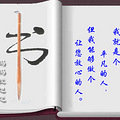 书
我就是个
平凡的人，
但我能够做个
让您放心的人。